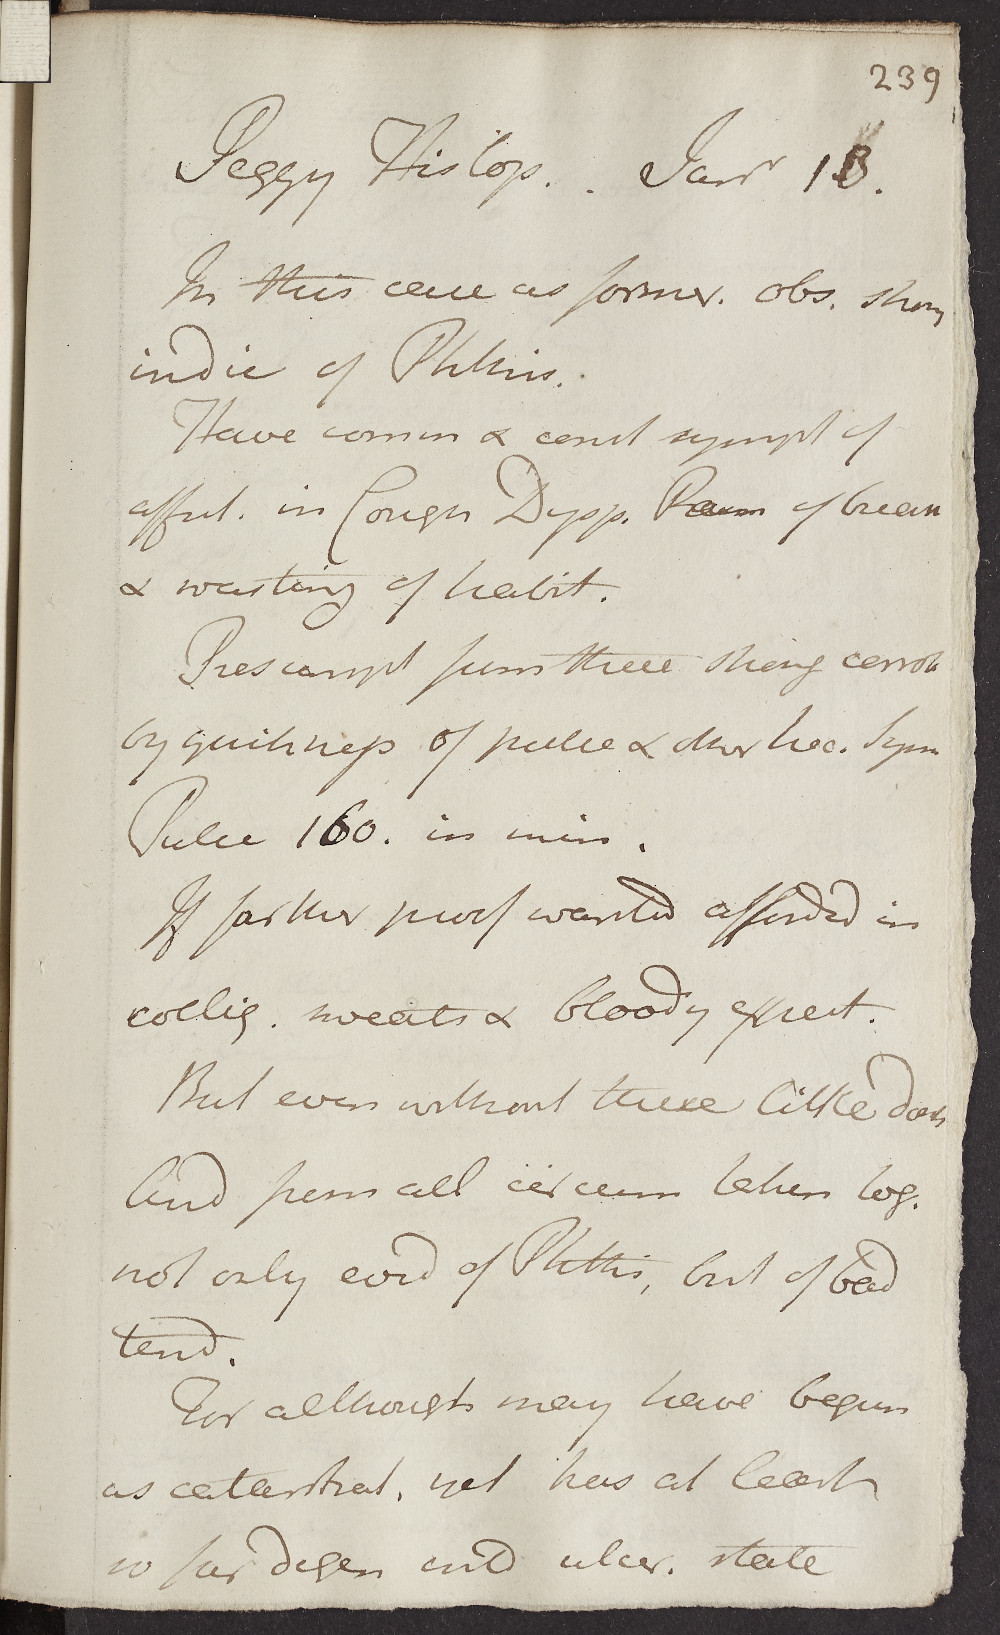 239
Peggy Hislop. . Janr 18.
In this case as former. obs. strong
indic of Phthisis.
Have comm & const sympt of
affect. in Cough Dysp. Pain of breast
& wasting of habit.
Presumpt from these strong corrob
by quickness of pulse & other hec. sym
Pulse 160. in min.
If farther proof wanted afforded in
collig. sweats & bloody expect.
But even without these little doubt
And from all circum taken tog.
not only evid of Phthis, but of bad
tend.
For although may have begun
as catarrhal, yet has at least
so far degen into ulcer. state